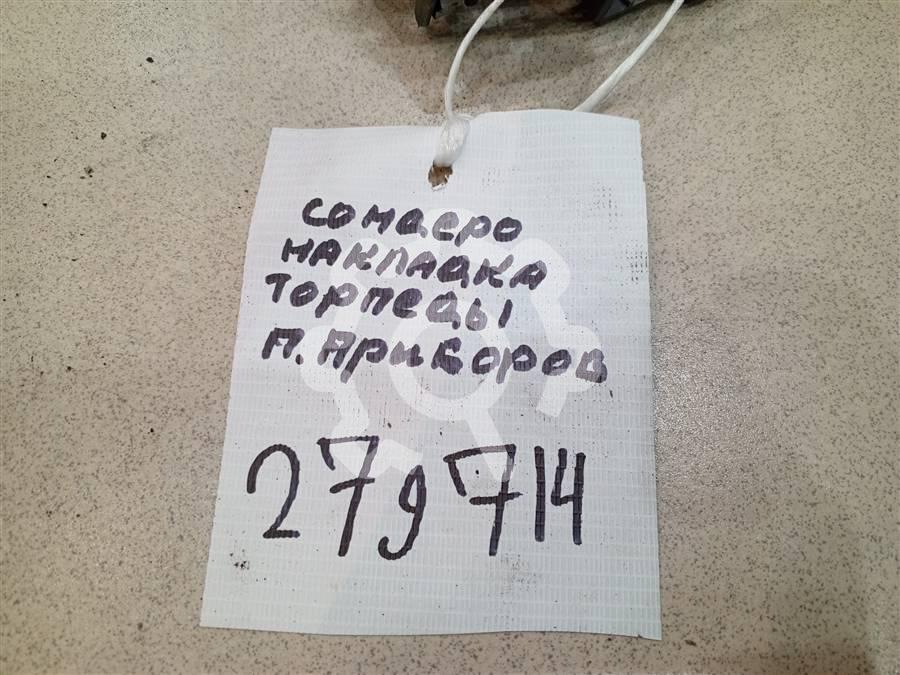 сомдеро
накладка
торпеды
п. приборов
279714